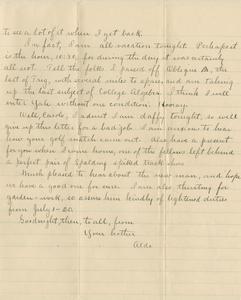 to see a lot of it when I get back.
In fact, I am all vacation tonight. Perhaps it
is the hour, 10:30, for during the day it was certainly
all out. Tell the folks I passed off Oblique the
last of Trig, with several miles to spare and am taking
up the last subject of College Algebra. I think I will
enter Yale without one condition. Hooray.
Well, Carlo, I admit I am daffy tonight, so will
give up this letter for a bad job. I am anxious to hear
how your golf match came out. Also have a present
for you when I come home, one of the fellows left behind
a perfect pair of Spalding spiked track shoes.
Much pleased to hear about the new man, and hope
we have a good one for sure. I am also thirsting for
garden-work, so assure him kindly of lightened duties
from July 1-20.
Goodnight, then, to all, from
Your brother
Aldo